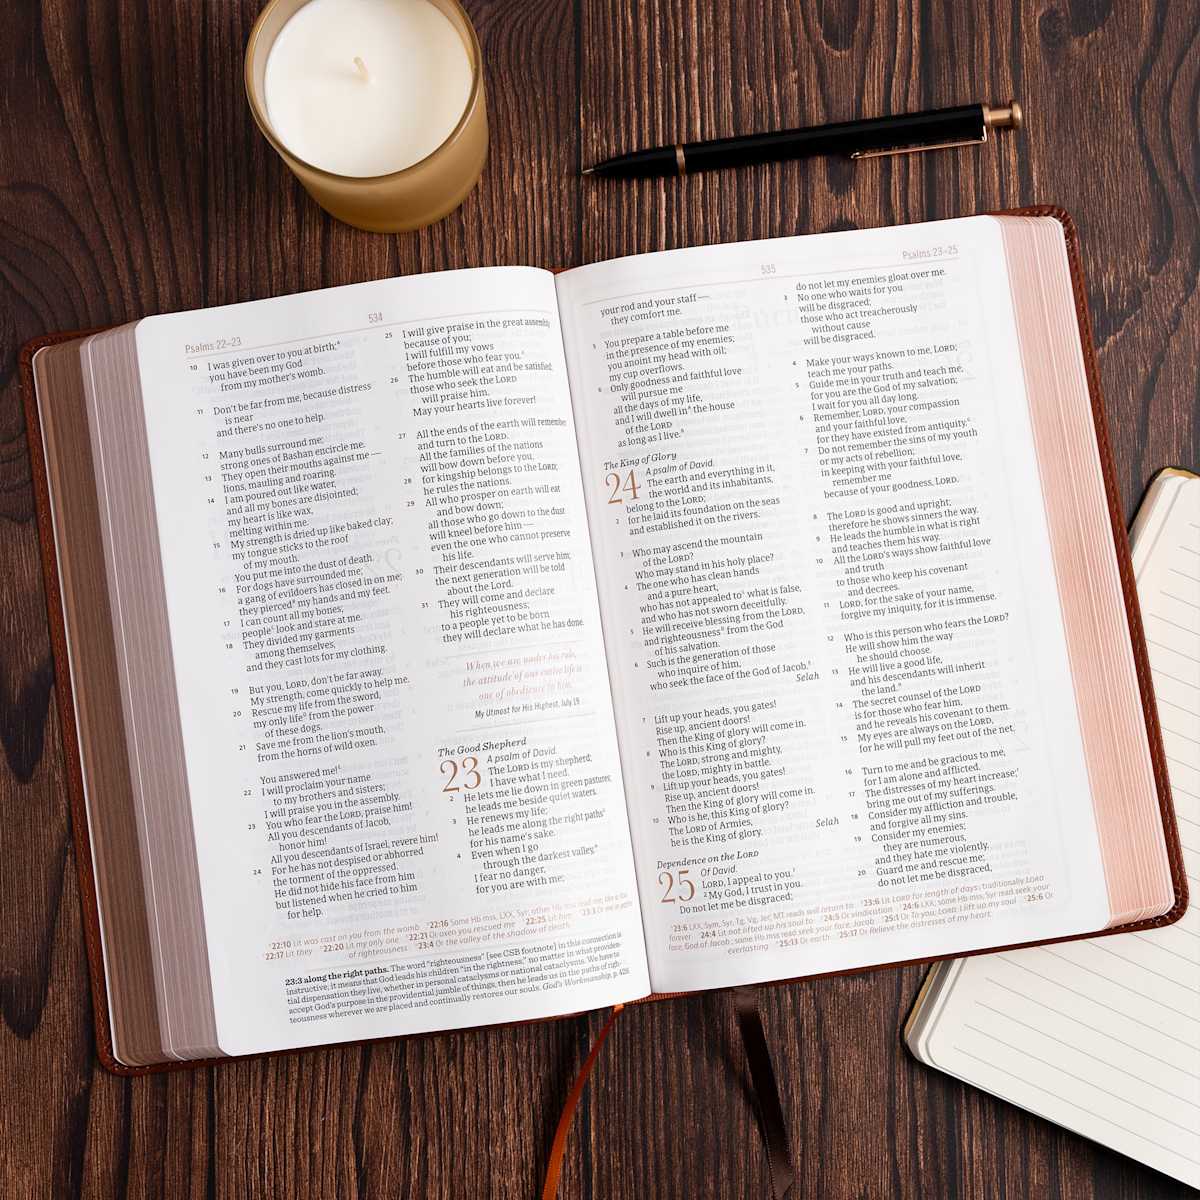 Psalms 22–23
534
10 I was given over to you at birth;ᴬ
you have been my God
from my mother's womb.
11 Don't be far from me, because distress
is near
and there's no one to help.
12 Many bulls surround me;
strong ones of Bashan encircle me.
13 They open their mouths against me —
lions, mauling and roaring.
14 I am poured out like water,
and all my bones are disjointed;
my heart is like wax,
melting within me.
15 My strength is dried up like baked clay;
my tongue sticks to the roof
of my mouth.
You put me into the dust of death.
16 For dogs have surrounded me;
a gang of evildoers has closed in on me;
they pierced my hands and my feet.
17 I can count all my bones;
people look and stare at me.
18 They divided my garments
among themselves,
and they cast lots for my clothing.
19 But you, LORD, don't be far away.
My strength, come quickly to help me.
20 Rescue my life from the sword,
my only life from the power
of these dogs.
21 Save me from the lion's mouth,
from the horns of wild oxen.
You answered me!
22 I will proclaim your name
to my brothers and sisters;
I will praise you in the assembly.
23 You who fear the LORD, praise him!
All you descendants of Jacob,
honor him!
All you descendants of Israel, revere him!
24 For he has not despised or abhorred
the torment of the oppressed.
He did not hide his face from him
but listened when he cried to him
for help.
25 I will give praise in the great assembly
because of you;
I will fulfill my vows
before those who fear you.
26 The humble will eat and be satisfied;
those who seek the LORD
will praise him.
May your hearts live forever!
27 All the ends of the earth will remember
and turn to the LORD.
All the families of the nations
will bow down before you,
28 for kingship belongs to the LORD;
he rules the nations.
29 All who prosper on earth will eat
and bow down;
all those who go down to the dust
will kneel before him —
even the one who cannot preserve
his life.
30 Their descendants will serve him;
the next generation will be told
about the Lord.
31 They will come and declare
his righteousness;
to a people yet to be born
they will declare what he has done.
When we are under his rule,
the attitude of our entire life is
one of obedience to him.
My Utmost for His Highest, July 19
The Good Shepherd
23 A psalm of David.
The LORD is my shepherd;
I have what I need.
2 He lets me lie down in green pastures;
he leads me beside quiet waters.
3 He renews my life;
he leads me along the right paths
for his name's sake.
4 Even when I go
through the darkest valley,
I fear no danger,
for you are with me;
22:10 Lit was cast on you from the womb 22:16 Some Hb mss, LXX, Syr; other Hb mss read me; like a lion
22:17 Lit they 22:20 Lit my only one 22:21 Or oxen you rescued me 22:25 Lit him 23:3 Or me in paths
of righteousness 23:4 Or the valley of the shadow of death
23:3 along the right paths. The word "righteousness" [see CSB footnote] in this connection is
instructive; it means that God leads his children "in the rightness," no matter in what providen-
tial dispensation they live, whether in personal cataclysms or national cataclysms. We have to
accept God's purpose in the providential jumble of things, then he leads us in the paths of righ-
teousness wherever we are placed and continually restores our souls. God's Workmanship, p. 428
535
Psalms 23–25
your rod and your staff —
they comfort me.
5 You prepare a table before me
in the presence of my enemies;
you anoint my head with oil;
my cup overflows.
6 Only goodness and faithful love
will pursue me
all the days of my life,
and I will dwell in the house
of the LORD
as long as I live.
The King of Glory
24 A psalm of David.
The earth and everything in it,
the world and its inhabitants,
belong to the LORD;
2 for he laid its foundation on the seas
and established it on the rivers.
3 Who may ascend the mountain
of the LORD?
Who may stand in his holy place?
4 The one who has clean hands
and a pure heart,
who has not appealed to what is false,
and who has not sworn deceitfully.
5 He will receive blessing from the LORD,
and righteousness from the God
of his salvation.
6 Such is the generation of those
who inquire of him,
who seek the face of the God of Jacob.
Selah
7 Lift up your heads, you gates!
Rise up, ancient doors!
Then the King of glory will come in.
8 Who is this King of glory?
The LORD, strong and mighty,
the LORD, mighty in battle.
9 Lift up your heads, you gates!
Rise up, ancient doors!
Then the King of glory will come in.
10 Who is he, this King of glory?
The LORD of Armies,
he is the King of glory. Selah
Dependence on the LORD
25 Of David.
LORD, I appeal to you.
2 My God, I trust in you.
Do not let me be disgraced;
do not let my enemies gloat over me.
3 No one who waits for you
will be disgraced;
those who act treacherously
without cause
will be disgraced.
4 Make your ways known to me, LORD;
teach me your paths.
5 Guide me in your truth and teach me,
for you are the God of my salvation;
I wait for you all day long.
6 Remember, LORD, your compassion
and your faithful love,
for they have existed from antiquity.
7 Do not remember the sins of my youth
or my acts of rebellion;
in keeping with your faithful love,
remember me
because of your goodness, LORD.
8 The LORD is good and upright;
therefore he shows sinners the way.
9 He leads the humble in what is right
and teaches them his way.
10 All the LORD's ways show faithful love
and truth
to those who keep his covenant
and decrees.
11 LORD, for the sake of your name,
forgive my iniquity, for it is immense.
12 Who is this person who fears the LORD?
He will show him the way
he should choose.
13 He will live a good life,
and his descendants will inherit
the land.
14 The secret counsel of the LORD
is for those who fear him,
and he reveals his covenant to them.
15 My eyes are always on the LORD,
for he will pull my feet out of the net.
16 Turn to me and be gracious to me,
for I am alone and afflicted.
17 The distresses of my heart increase;
bring me out of my sufferings.
18 Consider my affliction and trouble,
and forgive all my sins.
19 Consider my enemies;
they are numerous,
and they hate me violently.
20 Guard me and rescue me;
do not let me be disgraced,
23:6 LXX, Sym, Syr, Tg, Vg, Jer; MT reads will return to 23:6 Lit LORD for length of days; traditionally LORD
forever 24:4 Lit not lifted up his soul to 24:5 Or vindication 24:6 LXX; some Hb mss, Syr read seek your
face, God of Jacob; some Hb mss read seek your face, Jacob 25:1 Or To you, LORD, I lift up my soul 25:6 Or
everlasting 25:13 Or earth 25:17 Or Relieve the distresses of my heart